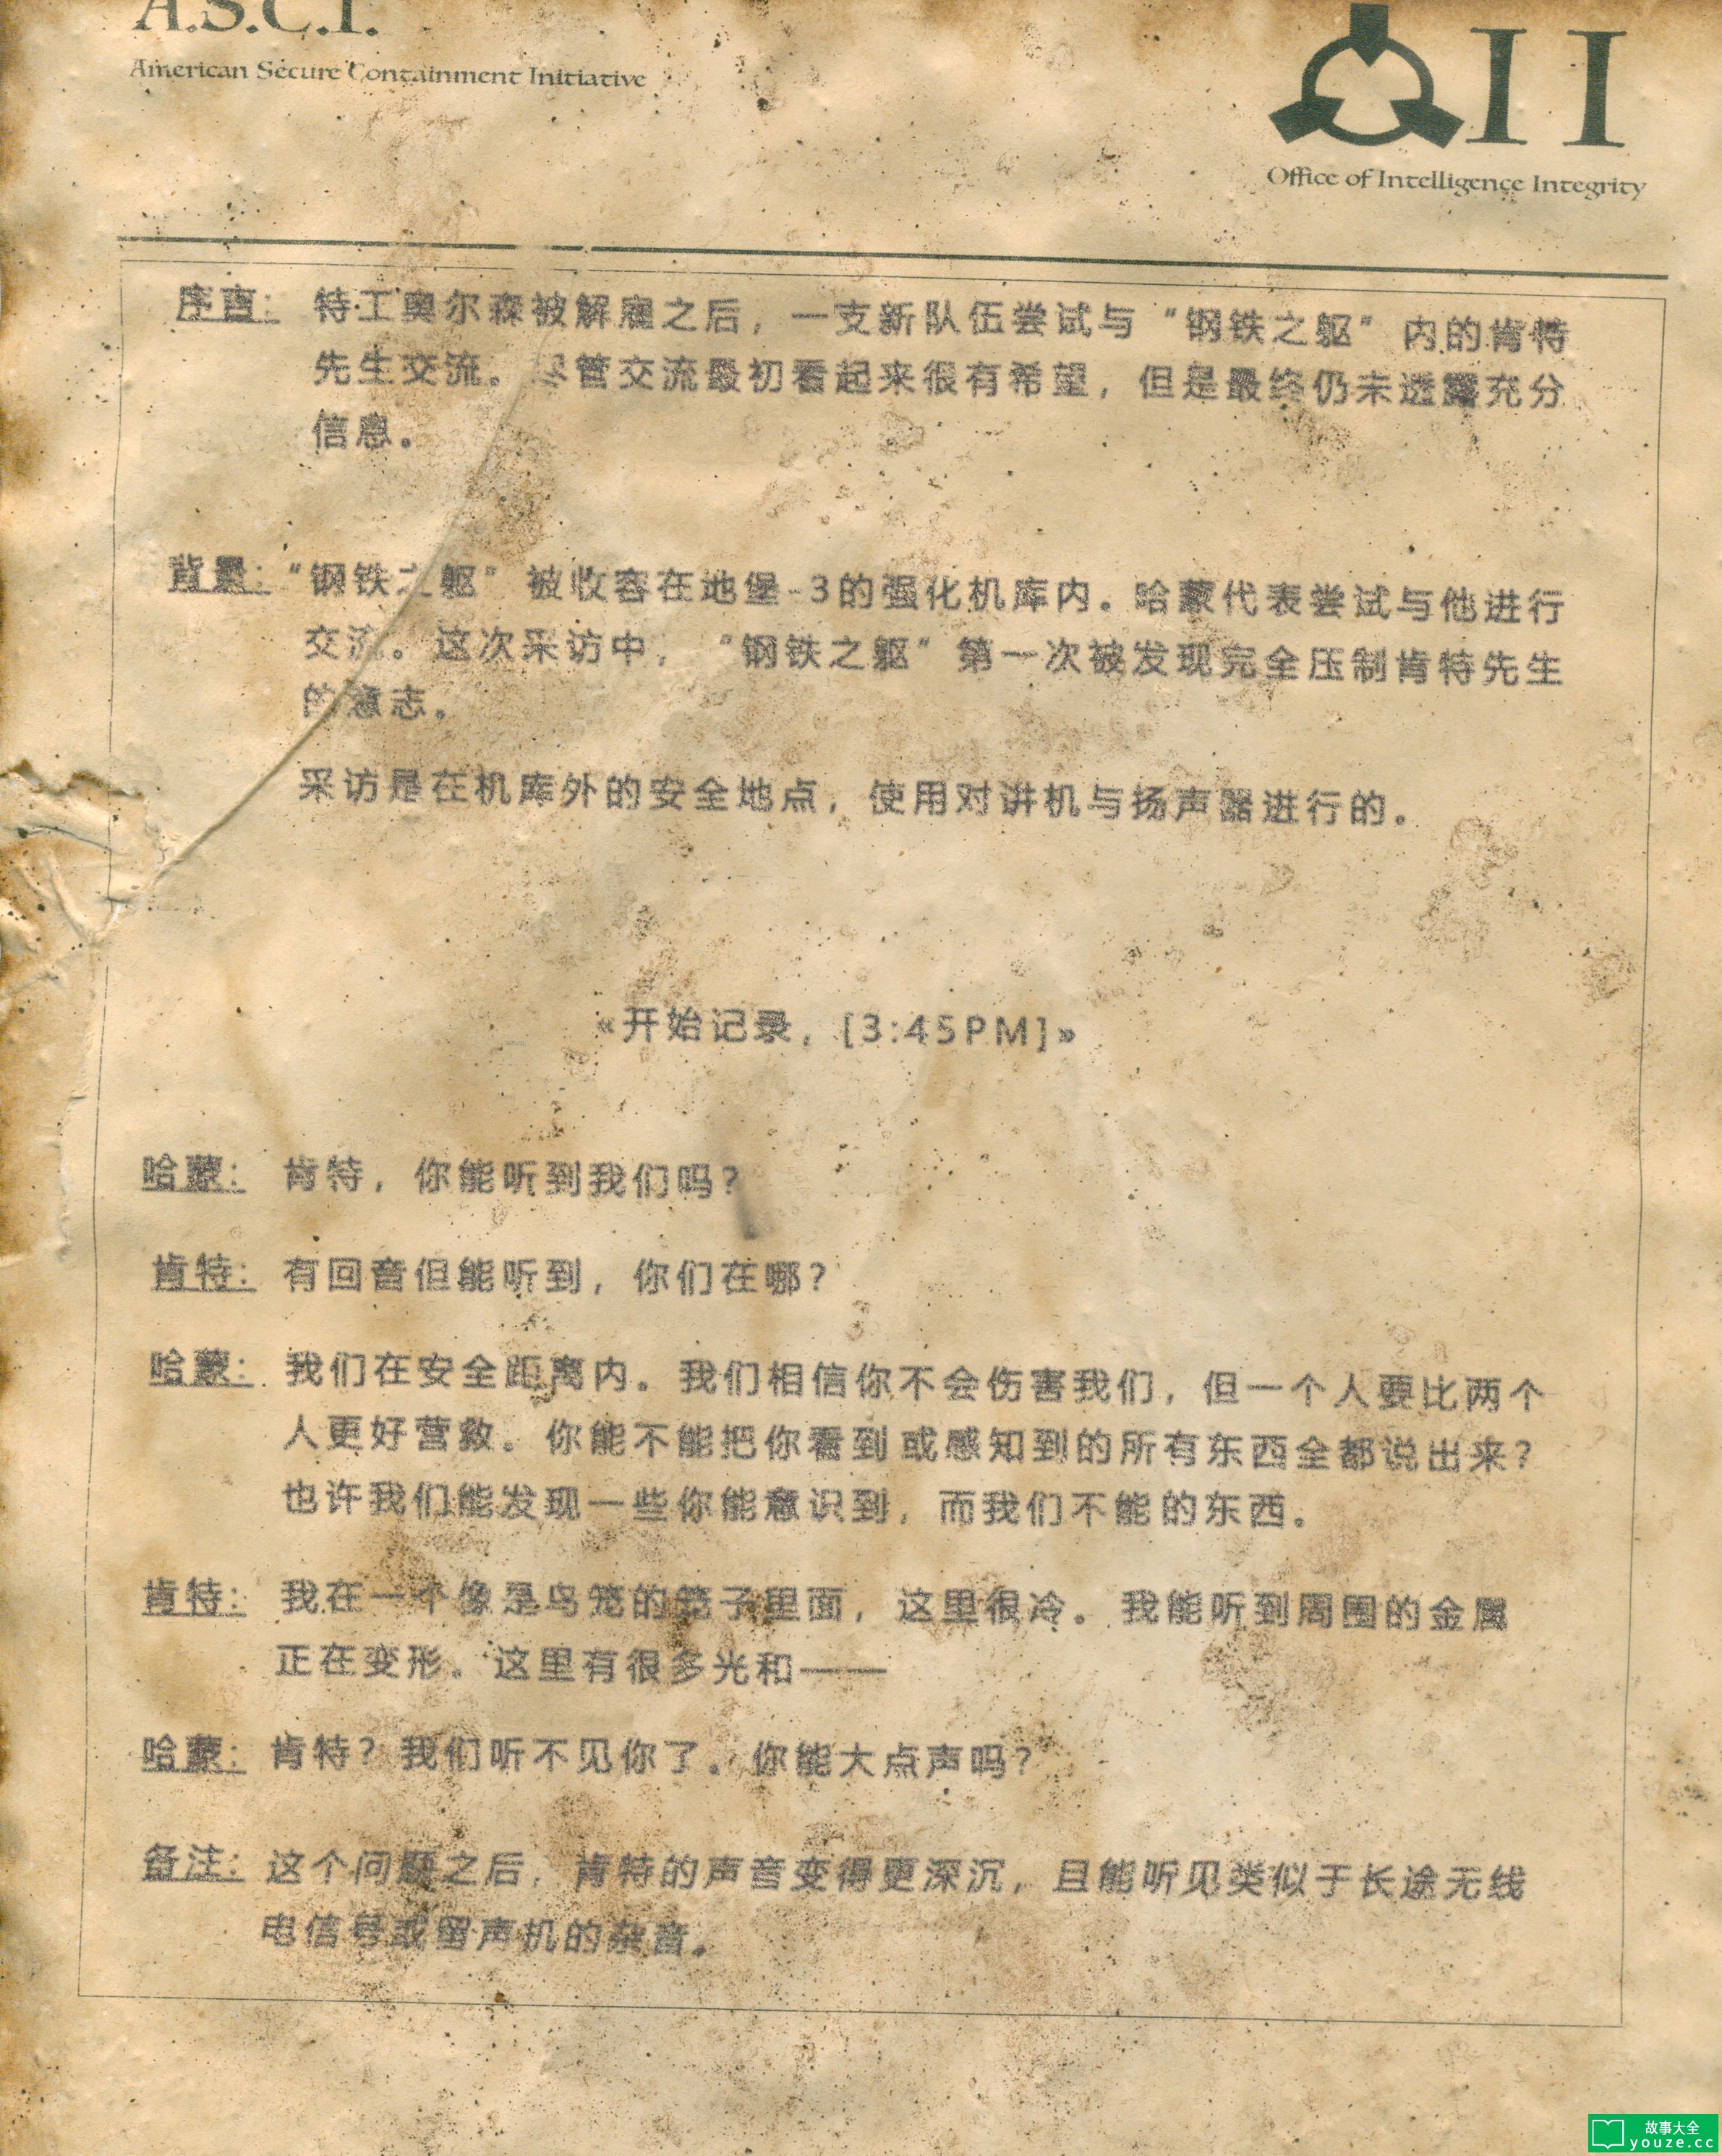 A.S.C.I.
American Secure Containment Initiative
II
Office of Intelligence Integrity
序言: 特工奥尔森被解雇之后，一支新队伍尝试与“钢铁之躯”内的肯特
先生交流。尽管交流最初看起来很有希望，但是最终仍未透露充分
信息。
背景: “钢铁之躯”被收容在地堡-3的强化机库内。哈蒙代表尝试与他进行
交流。这次采访中，“钢铁之躯”第一次被发现完全压制肯特先生
的意志。
采访是在机库外的安全地点，使用对讲机与扬声器进行的。
«开始记录，[3:45PM]»
哈蒙: 肯特，你能听到我们吗？
肯特: 有回音但能听到，你们在哪？
哈蒙: 我们在安全距离内。我们相信你不会伤害我们，但一个人要比两个
人更好营救。你能不能把你看到或感知到的所有东西全都说出来？
也许我们能发现一些你能意识到，而我们不能的东西。
肯特: 我在一个像是鸟笼的笼子里面，这里很冷。我能听到周围的金属
正在变形。这里有很多光和——
哈蒙: 肯特？我们听不见你了。你能大点声吗？
备注: 这个问题之后，肯特的声音变得更深沉，且能听见类似于长途无线
电信号或留声机的杂音。
故事大全
youze.cc